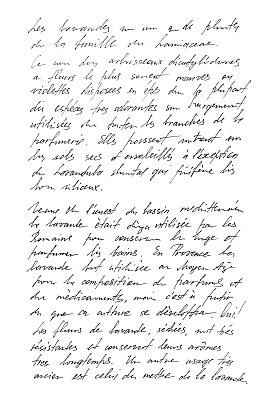 Les lavandes un 2 de plantes
de la famille des lamiaceae.
Ce sont des arbrisseaux dicotylédones
à fleurs le plus souvent mauves ou
violettes disposées en épis dont la plupart
des espèces très odorantes sont largement
utilisées dans toutes les branches de la
parfumerie. Elles poussent surtout sur
les sols secs et ensoleillés à l'exception
de Lavandula Stoechas qui préfère les
sols siliceux.
Venue de l'ouest du bassin méditerranéen
la lavande était déjà utilisée par les
Romains pour conserver le linge et
parfumer les bains. En Provence la
lavande fut utilisée au Moyen Age
pour la composition de parfums et
de médicaments, mais c'est à partir
du que sa culture se développa.
Les fleurs de lavande, séchées, sont très
résistantes et conservent leurs arômes
très longtemps. Un autre usage très
ancien est celui de mettre de la lavande